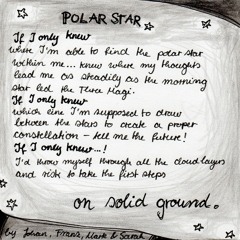 POLAR STAR
If I only knew
where I'm able to find the polar star
within me... knew where my thoughts
lead me as steadily as the morning
star led the Three Magi.
If I only knew
which line I'm supposed to draw
between the stars to create a proper
constellation - tell me the future!
If I only knew...!
I'd throw myself through all the cloud layers
and risk to take the first steps
on solid ground.
by Johan, Franz, Mark & Sarah